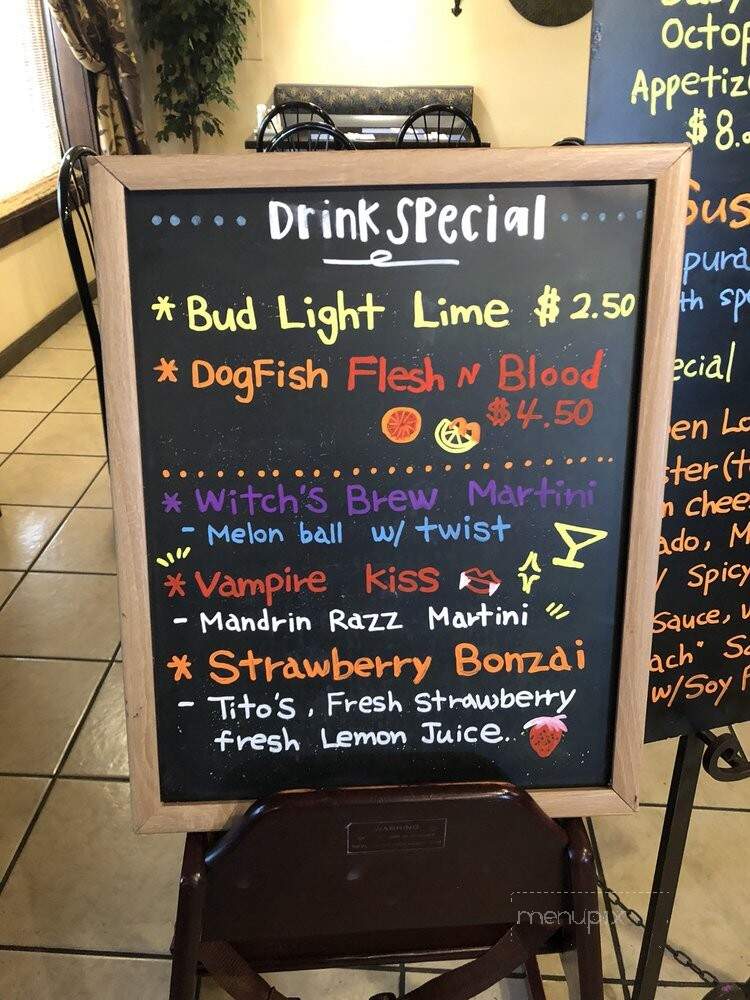 Drink Special
* Bud Light Lime $2.50
* DogFish Flesh N Blood
$4.50
* Witch's Brew Martini
- Melon ball w/ twist
* Vampire Kiss
- Mandrin Razz Martini
* Strawberry Bonzai
- Tito's, Fresh Strawberry
fresh Lemon Juice.
WARNING
menupix
Octop
Appetiz
$8.
Sus
pura
th sp
ecial
en Lo
ster (t
n chee
ado, M
/ Spicy
Sauce, w
ach" Sa
w/Soy P